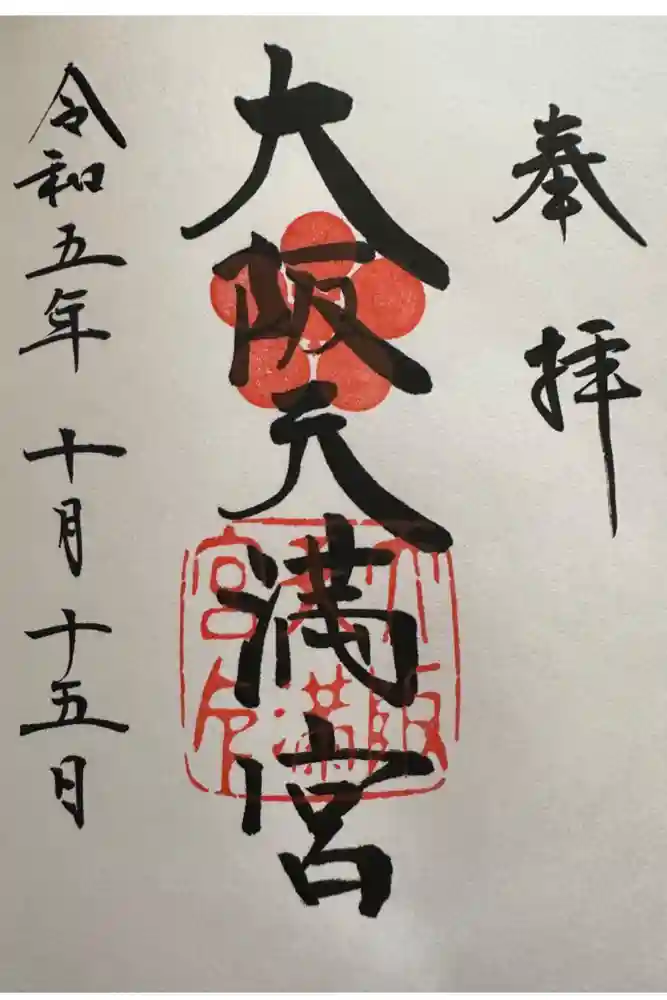 奉拝
大阪天満宮
大阪
天満
宮印
令和五年十月十五日